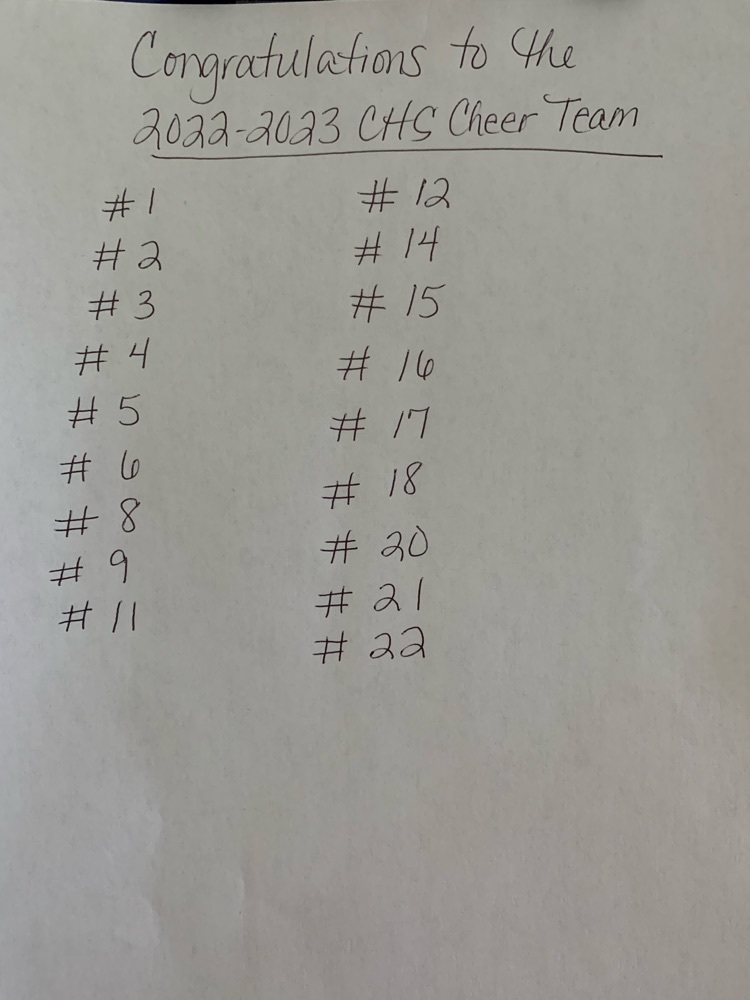 Congratulations to the
2022-2023 CHS Cheer Team
# 1
# 2
# 3
# 4
# 5
# 6
# 8
# 9
# 11
# 12
# 14
# 15
# 16
# 17
# 18
# 20
# 21
# 22